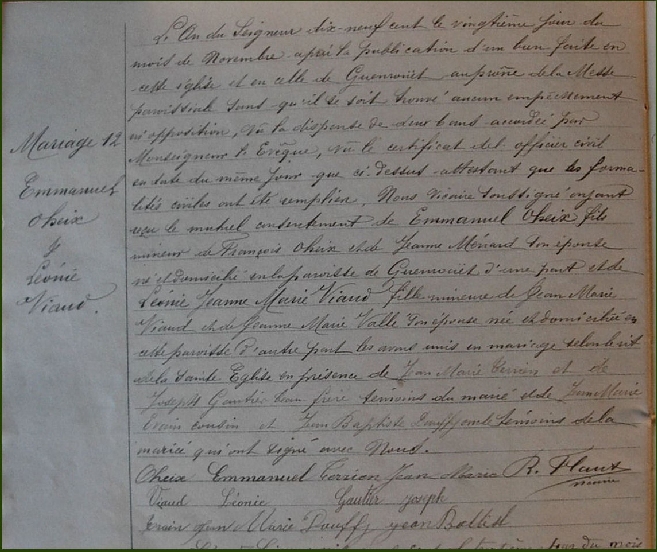 Mariage 12
Emmanuel
Oheix
&
Léonie
Viaud.
L'An du Seigneur dix-neuf cent le vingtième jour du
mois de Novembre après la publication d'un ban faite en
cette église et en celle de Guenrouët au prône de la Messe
paroissiale sans qu'il se soit trouvé aucun empêchement
ni opposition, Vu la dispense de deux bans accordée par
Monseigneur l'Evêque, vu le certificat de l'officier civil
en date du même jour que ci-dessus attestant que les forma-
lités civiles ont été remplies, Nous Vicaire soussigné ayant
reçu le mutuel consentement de Emmanuel Oheix fils
mineur de François Oheix et de Jeanne Ménard son épouse
né et domicilié en la paroisse de Guenrouët d'une part et de
Léonie Jeanne Marie Viaud fille mineure de Jean Marie
Viaud et de Jeanne Marie Valle son épouse née et domiciliée en
cette paroisse d'autre part les avons unis en mariage selon le rit
de la Sainte Eglise en présence de Jean Marie Terrien et de
Joseph Gautier beau frère témoins du marié et de Jean Marie
cousin et Jean Baptiste témoins de la
mariée qui ont signé avec Nous.
Oheix Emmanuel Terrien Jean Marie R. Flaux
vicaire
Viaud Léonie Gautier Joseph
Jean Marie